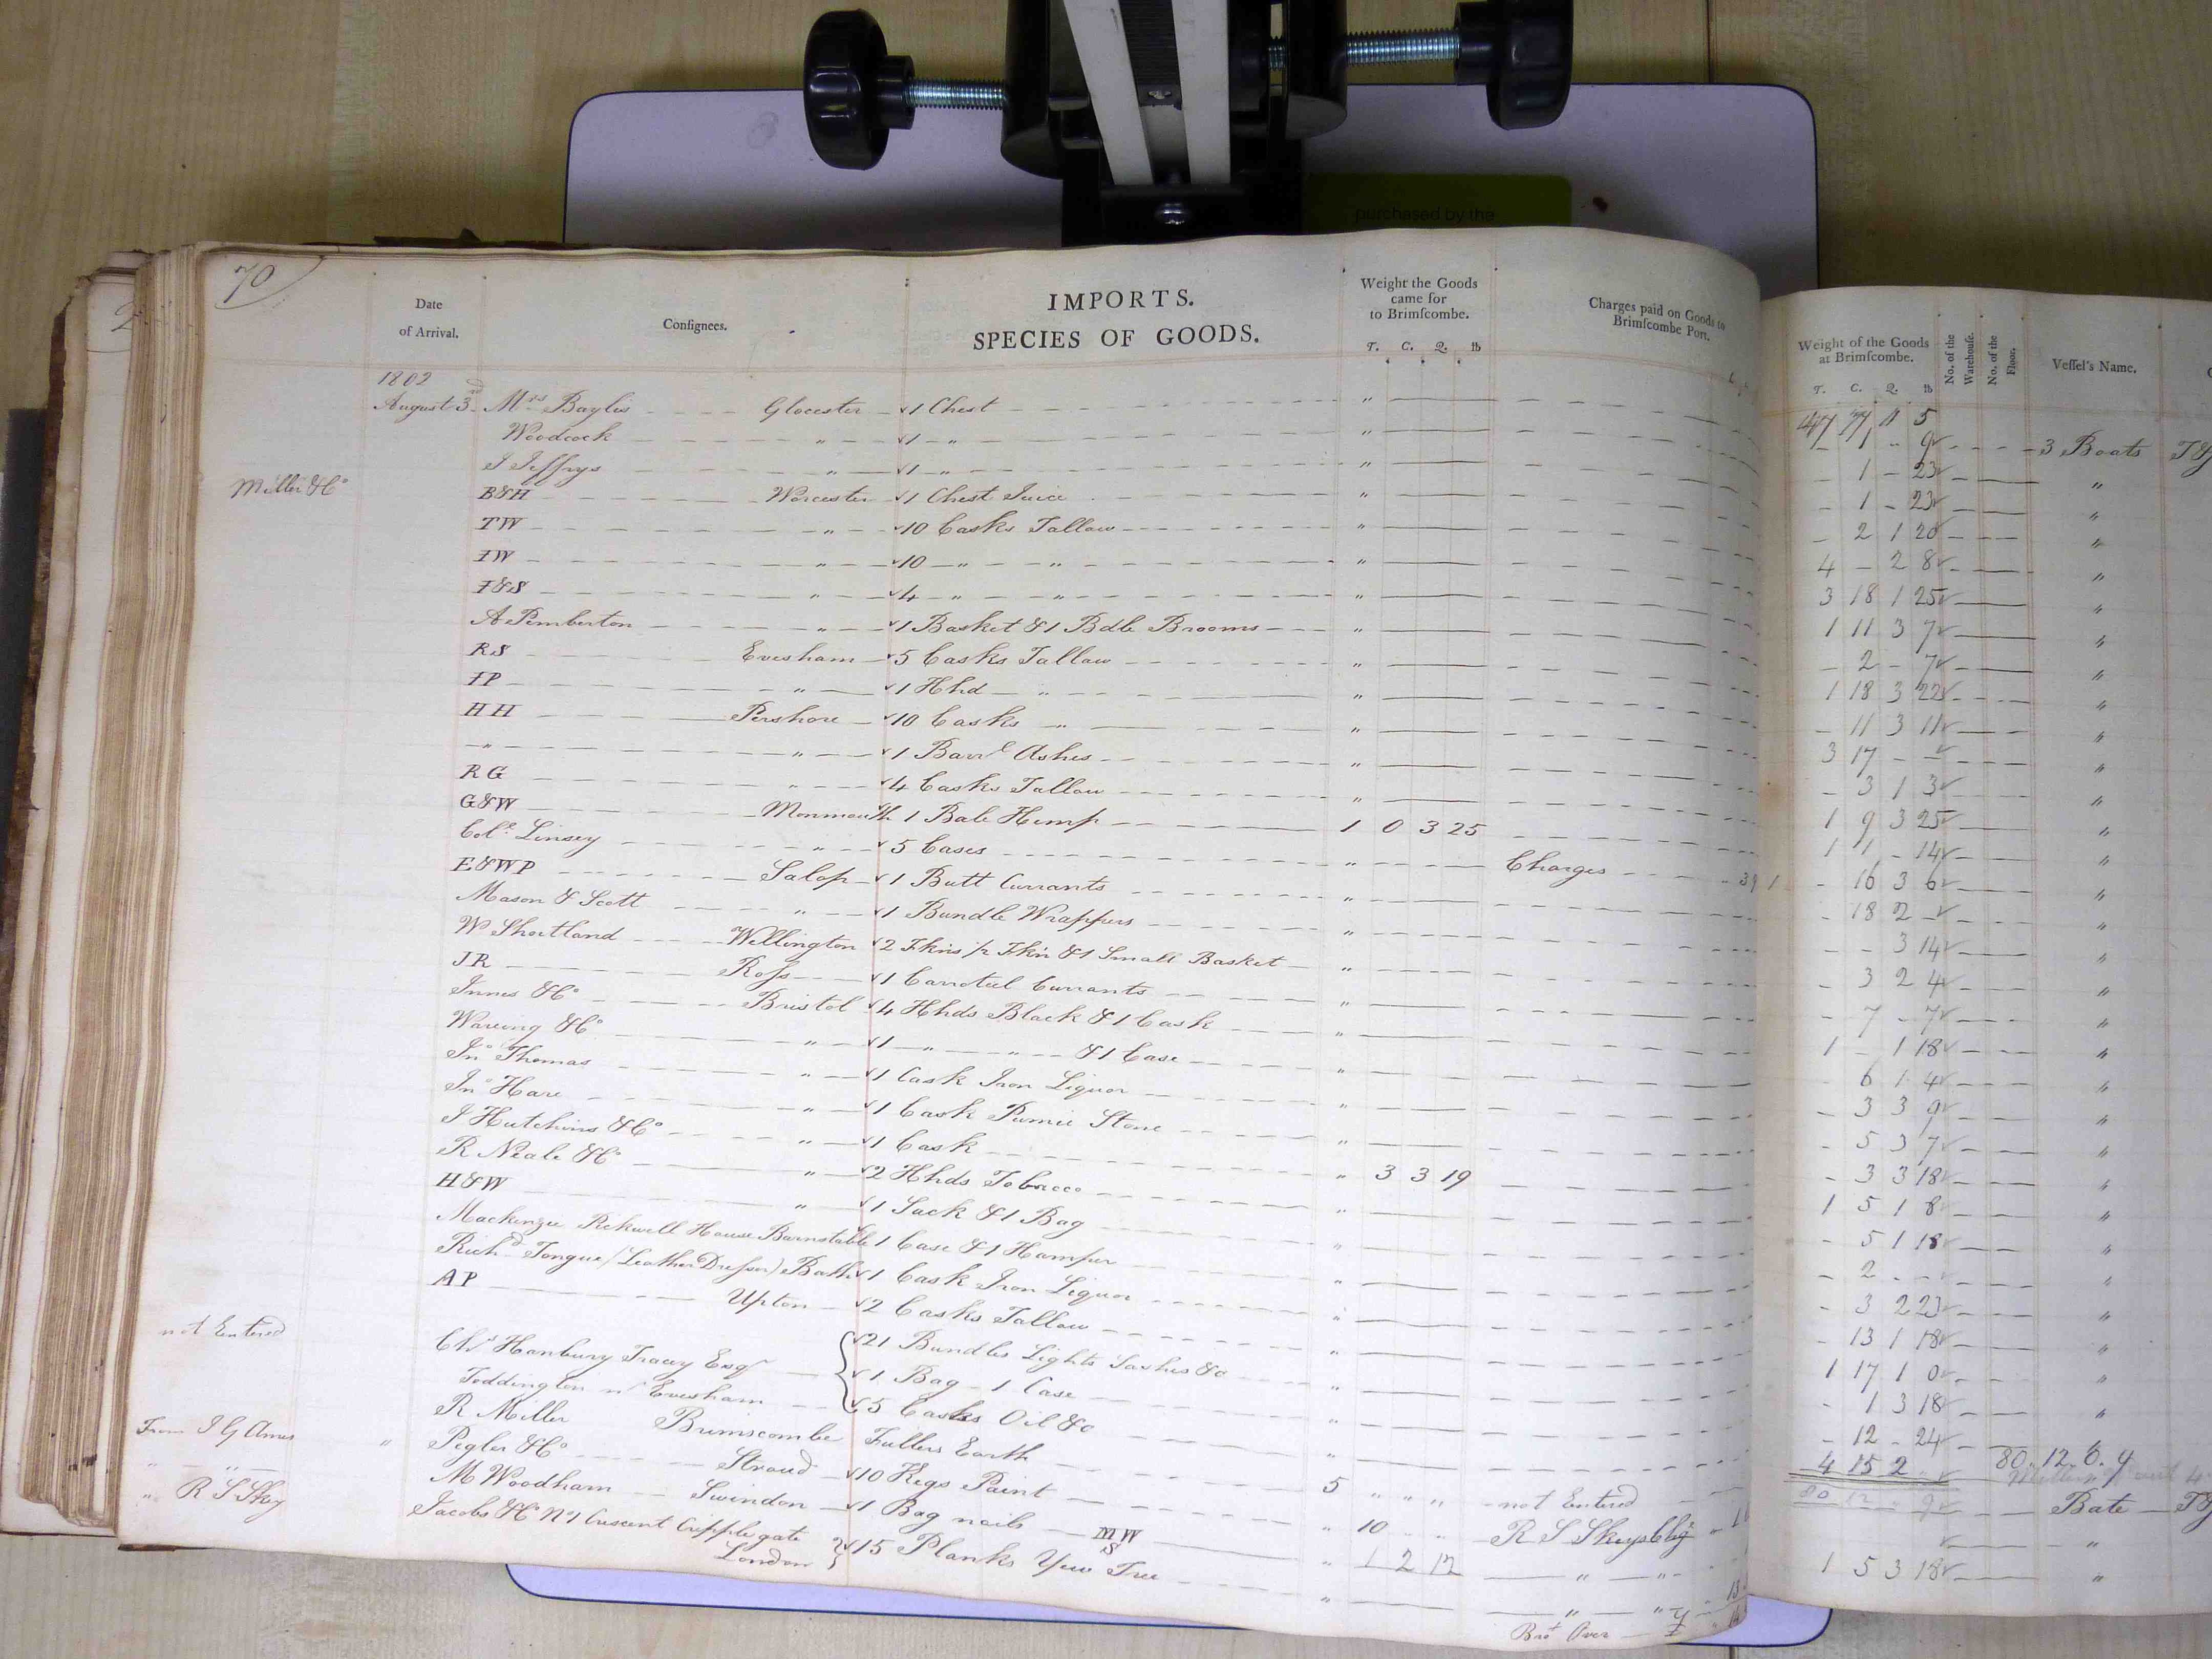 purchased by the
70
Date of Arrival.
Consignees.
IMPORTS.
SPECIES OF GOODS.
Weight the Goods came for to Brimscombe.
T. C. Q. lb
Charges paid on Goods to Brimscombe Port.
Weight of the Goods at Brimscombe.
T. C. Q. lb
No. of the Warehouse.
No. of the Floor.
Vessel's Name.
2
1802
August 3rd Mrs Baylis Glocester 1 Chest " 1 " 9 3 Boats
Woodcock " 1 " " 1 - 23 "
I Jeffrys " 1 " " 1 - 23 "
Miller & Co B&H Worcester 1 Chest Juice " 2 1 20 "
TW " 10 Casks Tallow " 4 - 2 8 "
IW " 10 " " " 3 18 1 25 "
I&S " 4 " " " 1 11 3 7 "
A Pemberton " 1 Basket & 1 Bdle Brooms " 2 - 7 "
RS Evesham 5 Casks Tallow " 1 18 3 22 "
IP " 1 Hhd " " 11 3 11 "
HH Pershore 10 Casks " " 3 17 - - "
" " 1 Barrl Ashes " 3 1 3 "
RG " 4 Casks Tallow " 1 9 3 25 "
G&W Monmouth 1 Bale Hemp 1 0 3 25 1 1 - 14 "
Coll. Linsey " 5 Cases " Charges 16 3 6 "
E&WP Salop 1 Butt Currants " 18 2 - "
Mason & Scott " 1 Bundle Wrappers " - 3 14 "
W Shortland Wellington 2 Fkins 1/2 Fkin & 1 Small Basket " 3 2 4 "
JR Ross 1 Carroteel Currants " 7 - 7 "
Innes & Co Bristol 4 Hhds Black & 1 Cask " 1 - 1 18 "
Wareing & Co " 1 " " & 1 Case " 6 1 4 "
Jno Thomas " 1 Cask Iron Liquor " 3 3 9 "
Jno Hare " 1 Cask Pumie Stone " 5 3 7 "
I Hutchins & Co " 1 Cask " 3 3 19 3 3 18 "
R Neale & Co " 2 Hhds Tobacco " 1 5 1 8 "
H&W " 1 Sack & 1 Bag " 5 1 18 "
Mackenzie Rickwell House Barnstable 1 Case & 1 Hamper " 2 - - "
Richd Tongue (Leather Dresser) Bath 1 Cask Iron Liquor " 3 2 23 "
AP Upton 2 Casks Tallow " 13 1 18 "
not Entered Chs Hanbury Tracey Esqr 21 Bundles Lights Sashes &c " 1 17 1 0 "
Toddington nr Evesham 1 Bag 1 Case " 1 3 18 "
5 Casks Oil &c " 12 - 24
R Miller Brimscombe Fullers Earth 5 " " " not Entered 4 15 2 80.12.6.4
From I G Ames " Pegler & Co Stroud 10 Kegs Paint " 10 " " Bate
" " M Woodham Swindon 1 Bag nails MW S " 1 2 12 " " "
" R S Skey Jacobs & Co No 1 Crescent Cripplegate London 15 Planks Yew Tree " " " 1 5 3 18 "
Brot Over